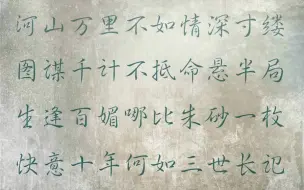 河山万里不如情深寸缕
图谋千计不抵命悬半局
生逢百媚哪比朱砂一枚
快意十年何如三世长记